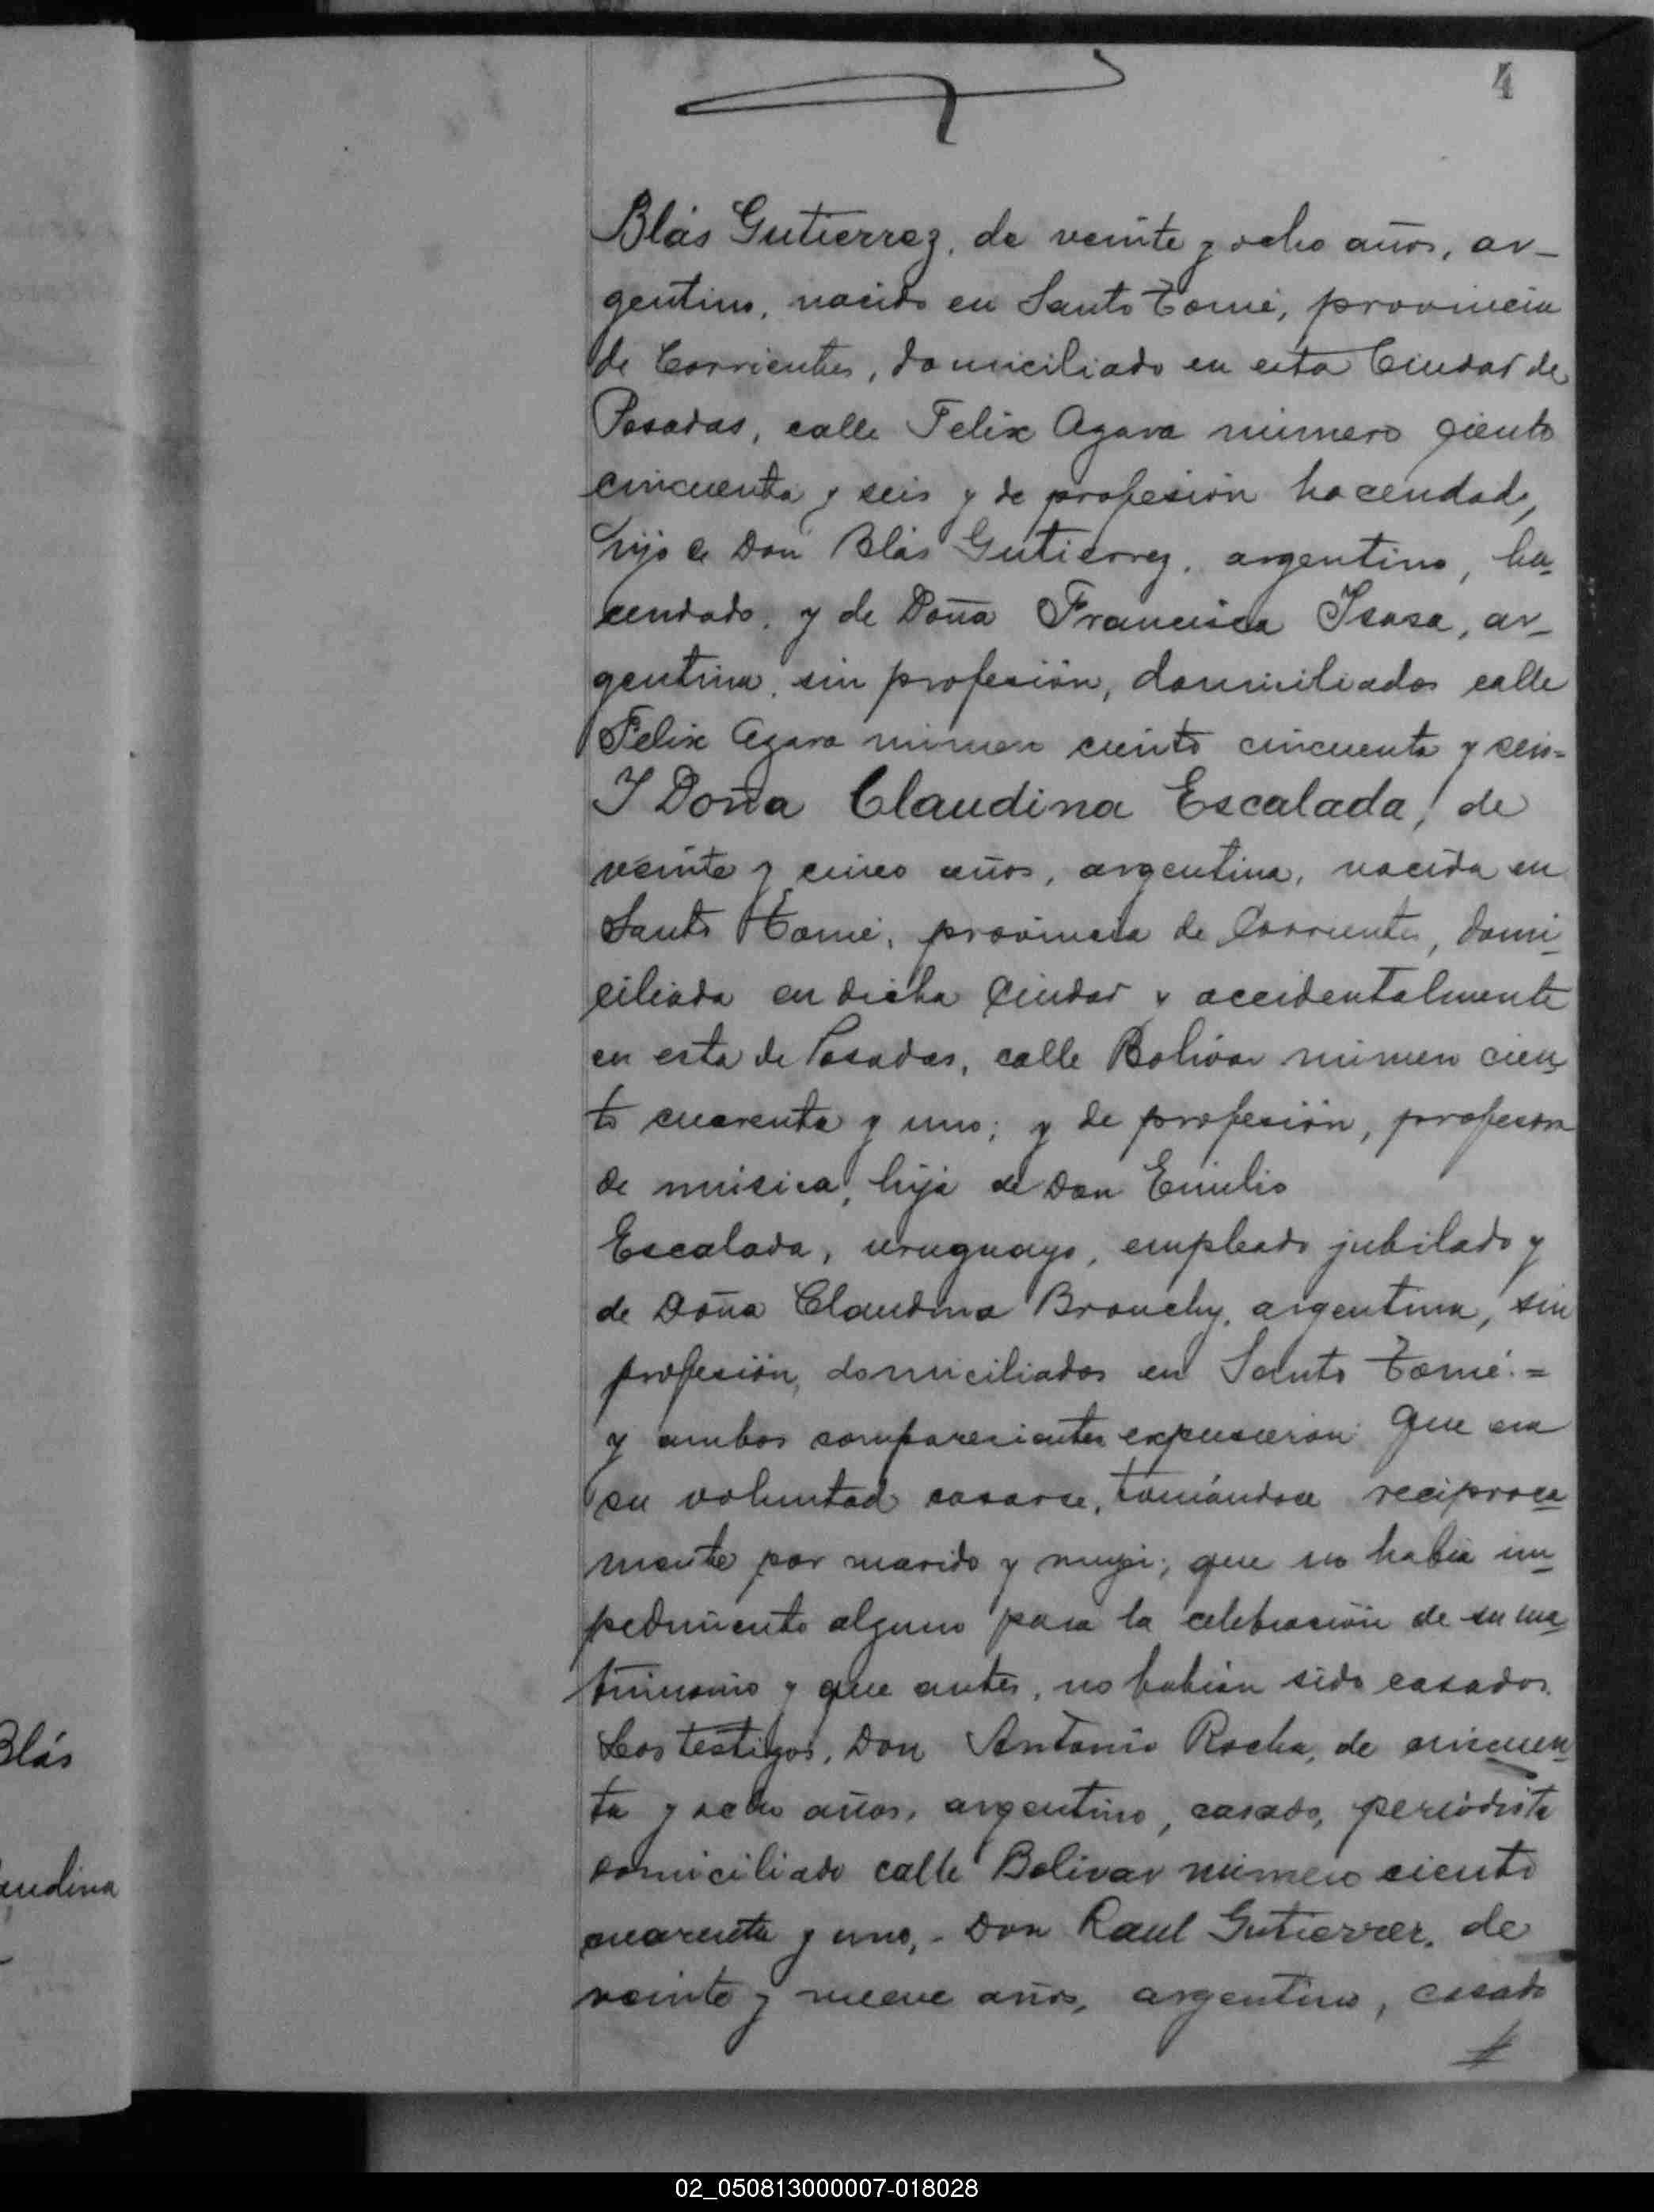 4
Blás Gutierrez, de veinte y ocho años, ar-
gentino, nacido en Santo Tomé, provincia
de Corrientes, domiciliado en esta Ciudad de
Posadas, calle Felix Azara número ciento
cincuenta y seis y de profesión hacendado,
hijo de Don Blás Gutierrez, argentino, ha-
cendado, y de Doña Francisca Isasa, ar-
gentina, sin profesión, domiciliados calle
Felix Azara número ciento cincuenta y seis=
Y Doña Claudina Escalada, de
veinte y cinco años, argentina, nacida en
Santo Tomé, provincia de Corrientes, domi-
ciliada en dicha Ciudad y accidentalmente
en esta de Posadas, calle Bolivar número cien-
to cuarenta y uno; y de profesión, profesora
de música, hija de Don Emilio
Escalada, uruguayo, empleado jubilado y
de Doña Claudina Brouchy, argentina, sin
profesión, domiciliados en Santo Tomé.=
y ambos comparecientes expusieron: Que era
su voluntad casarse, tomándose reciproca-
mente por marido y mujer; que no había im-
pedimento alguno para la celebración de su ma-
trimonio y que antes, no habían sido casados.
Los testigos, Don Antonio Rocha, de cincuen-
ta y ocho años, argentino, casado, periodista
domiciliado calle Bolivar número ciento
cuarenta y uno,- Don Raul Gutierrez, de
veinte y nueve años, argentino, casado
Blás
audina
02_050813000007-018028